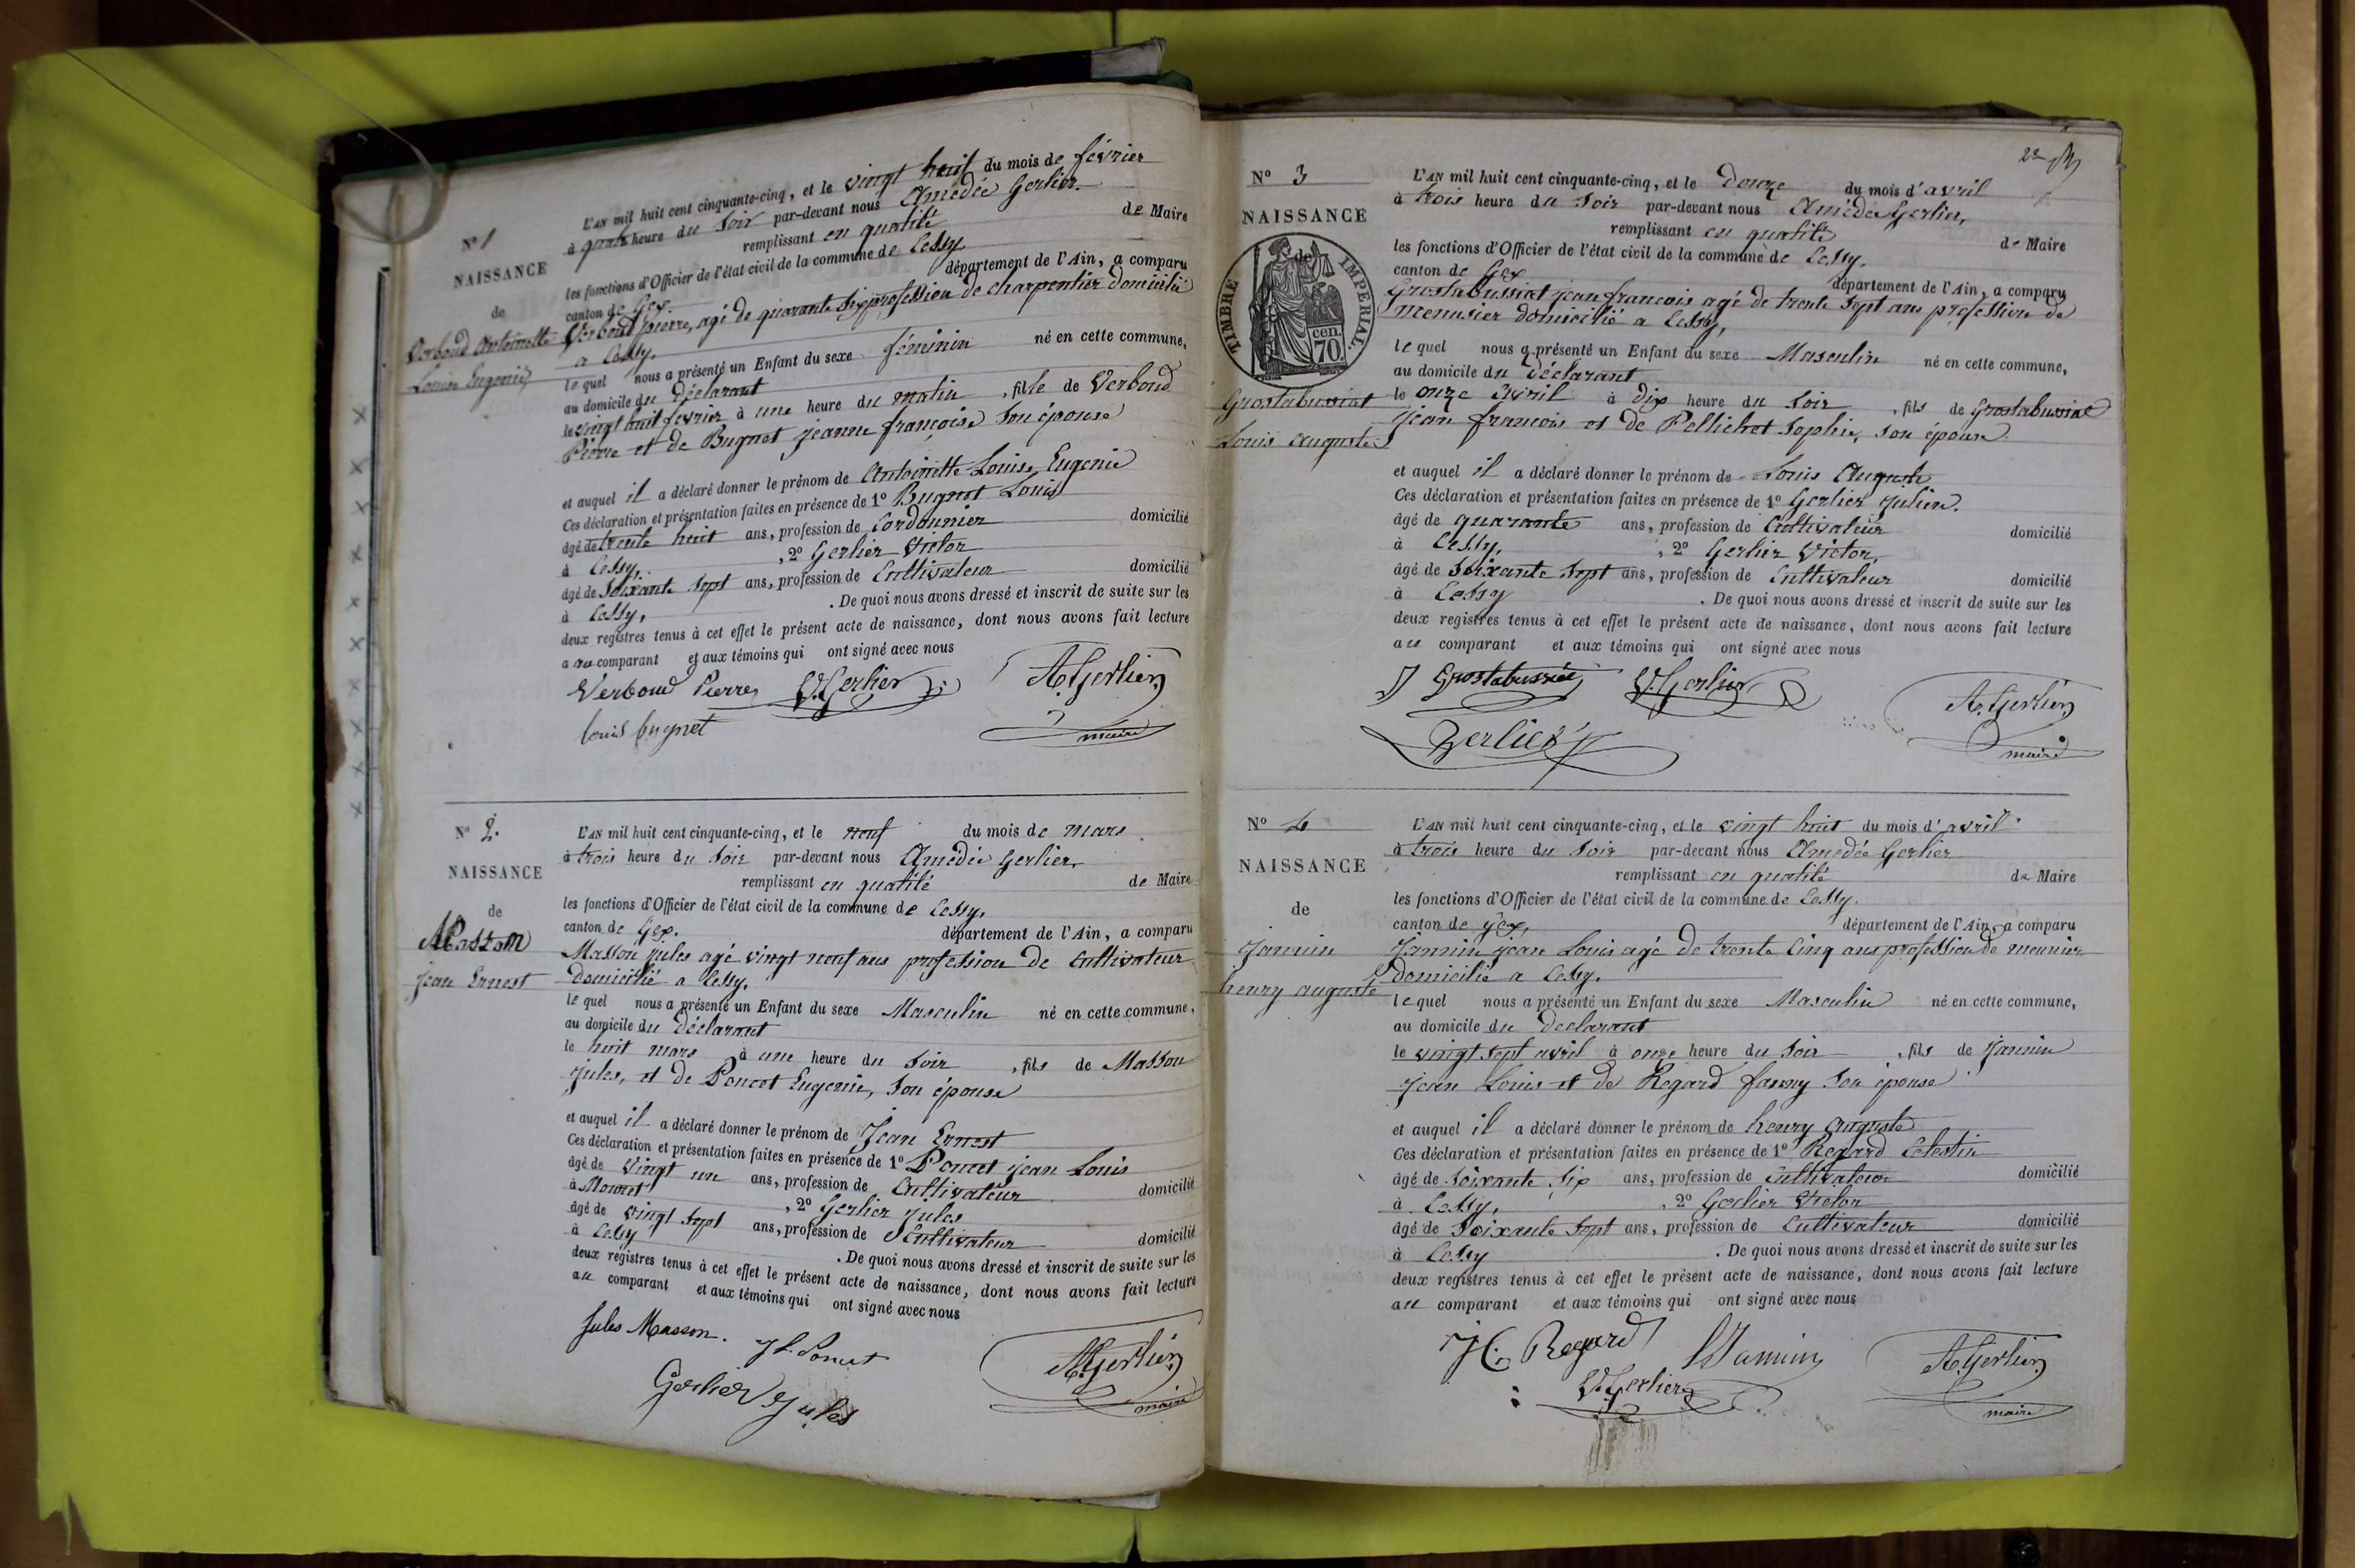 N° 1
NAISSANCE
de
Verboud Antoinette
Louise Eugenie
L'AN mil huit cent cinquante-cinq, et le vingt huit du mois de février
à quatre heure du Soir par-devant nous Amédée Gerlier.
remplissant en qualité de Maire
les fonctions d'Officier de l'état civil de la commune de Cessy
canton de Gex département de l'Ain, a comparu
Verboud pierre, agé de quarante six profession de charpentier domicilié
a Cessy.
lequel nous a présenté un Enfant du sexe féminin né en cette commune,
au domicile du Déclarant
le vingt huit fevrier à une heure du matin, fille de Verboud
Pierre et de Bugnet jeanne françoise Son épouse
et auquel il a déclaré donner le prénom de Antoinette Louise, Eugenie
Ces déclaration et présentation faites en présence de 1° Bugnet Louis
âgé de trente huit ans, profession de Cordonnier domicilié
à Cessy, , 2° Gerlier Victor
âgé de Soixante Sept ans, profession de Cultivateur domicilié
à Cessy, . De quoi nous avons dressé et inscrit de suite sur les
deux registres tenus à cet effet le présent acte de naissance, dont nous avons fait lecture
au comparant et aux témoins qui ont signé avec nous
Verboud Pierre V. Gerlier A. Gerlier
Louis bugnet maire
N° 2.
NAISSANCE
de
Masson
jean Ernest
L'AN mil huit cent cinquante-cinq, et le neuf du mois de mars
à trois heure du Soir par-devant nous Amédée Gerlier,
remplissant en qualité de Maire
les fonctions d'Officier de l'état civil de la commune de Cessy,
canton de Gex. département de l'Ain, a comparu
Masson jules agé vingt neuf ans profession de Cultivateur
domicilié a Cessy.
lequel nous a présenté un Enfant du sexe Masculin né en cette commune,
au domicile du Déclarant
le huit mars à une heure du Soir , fils de Masson
jules, et de Poncet Eugenie, Son épouse
et auquel il a déclaré donner le prénom de Jean Ernest
Ces déclaration et présentation faites en présence de 1° Poncet jean Louis
âgé de vingt un ans, profession de Cultivateur domicilié
à , 2° Gerlier jules
âgé de vingt Sept ans, profession de Cultivateur domicilié
à Cessy . De quoi nous avons dressé et inscrit de suite sur les
deux registres tenus à cet effet le présent acte de naissance, dont nous avons fait lecture
au comparant et aux témoins qui ont signé avec nous
Jules Masson. J L Poncet A. Gerlier
Gerlier Jules maire
2e
N° 3
NAISSANCE
de
TIMBRE IMPERIAL
70 cen.
Grostabussiat
Louis auguste
L'AN mil huit cent cinquante-cinq, et le Douze du mois d'avril
à trois heure du Soir par-devant nous Amédée Gerlier,
remplissant en qualité de Maire
les fonctions d'Officier de l'état civil de la commune de Cessy,
canton de Gex département de l'Ain, a comparu
Grostabussiat jean francois agé de trente Sept ans profession de
menusier domicilié a Cessy,
lequel nous a présenté un Enfant du sexe Masculin né en cette commune,
au domicile du Déclarant
le onze avril à Dix heure du Soir , fils de Grostabussiat
jean francois et de Pellichet Sophie, Son épouse
et auquel il a déclaré donner le prénom de Louis Auguste
Ces déclaration et présentation faites en présence de 1° Gerlier Julien.
âgé de quarante ans, profession de Cultivateur domicilié
à Cessy, , 2° Gerlier Victor,
âgé de Soixante Sept ans, profession de Cultivateur domicilié
à Cessy . De quoi nous avons dressé et inscrit de suite sur les
deux registres tenus à cet effet le présent acte de naissance, dont nous avons fait lecture
au comparant et aux témoins qui ont signé avec nous
V. Gerlier A. Gerlier
Gerlier maire
N° 4
NAISSANCE
de
Jannin
henry auguste
L'AN mil huit cent cinquante-cinq, et le vingt huit du mois d'avril
à trois heure du Soir par-devant nous Amédée Gerlier
remplissant en qualité de Maire
les fonctions d'Officier de l'état civil de la commune de Cessy.
canton de Gex, département de l'Ain, a comparu
Jannin jean Louis agé de trente Cinq ans profession de meunier
domicilié a Cessy.
lequel nous a présenté un Enfant du sexe Masculin né en cette commune,
au domicile du Declarant
le vingt sept avril à onze heure du Soir , fils de Jannin
jean Louis et de Regard fanny Son épouse
et auquel il a déclaré donner le prénom de henry auguste
Ces déclaration et présentation faites en présence de 1° Regard Celestin
âgé de Soixante Six ans, profession de Cultivateur domicilié
à Cessy, , 2° Gerlier Victor
âgé de Soixante Sept ans, profession de Cultivateur domicilié
à Cessy . De quoi nous avons dressé et inscrit de suite sur les
deux registres tenus à cet effet le présent acte de naissance, dont nous avons fait lecture
au comparant et aux témoins qui ont signé avec nous
Regard Jannin A. Gerlier
V. Gerlier maire